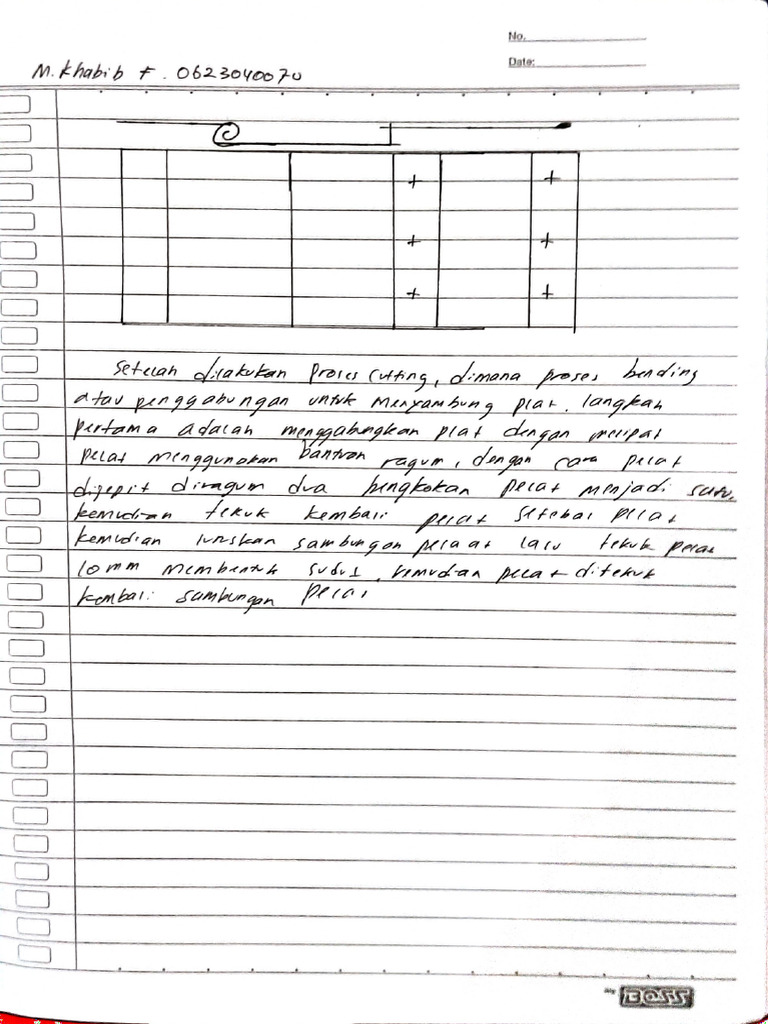 No.
Date:
M. Khabib F. 0623040070
+ +
+ +
+ +
Setelah dilakukan proses cutting, dimana proses bending
atau penggabungan untuk menyambung plat. langkah
pertama adalah menggabungkan plat dengan melipat
pelat menggunakan bantuan ragum, dengan cara pelat
dijepit diragum dua bengkokan pelat menjadi satu,
kemudian tekuk kembali pelat setebal pelat
kemudian luruskan sambungan pelaat lalu tekuk pelat
10mm membentuk sudut, kemudian pelat ditekuk
kembali sambungan pelat
BOSS